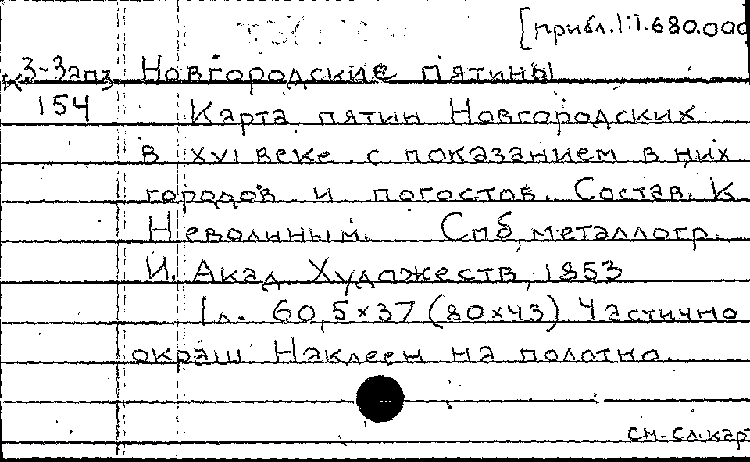 [прибл. 1:1.680.000
К3-Зап3 Новгородские пятины
154 Карта пятин Новгородских
в XVI веке с показанием в них
городов и погостов. Состав. К.
Неволиным. Спб, металлогр.
И. Акад. Художеств, 1853
1 л. 60,5×37 (80×43) Частично
окраш. Наклеен на полотно.
см. сл. кар